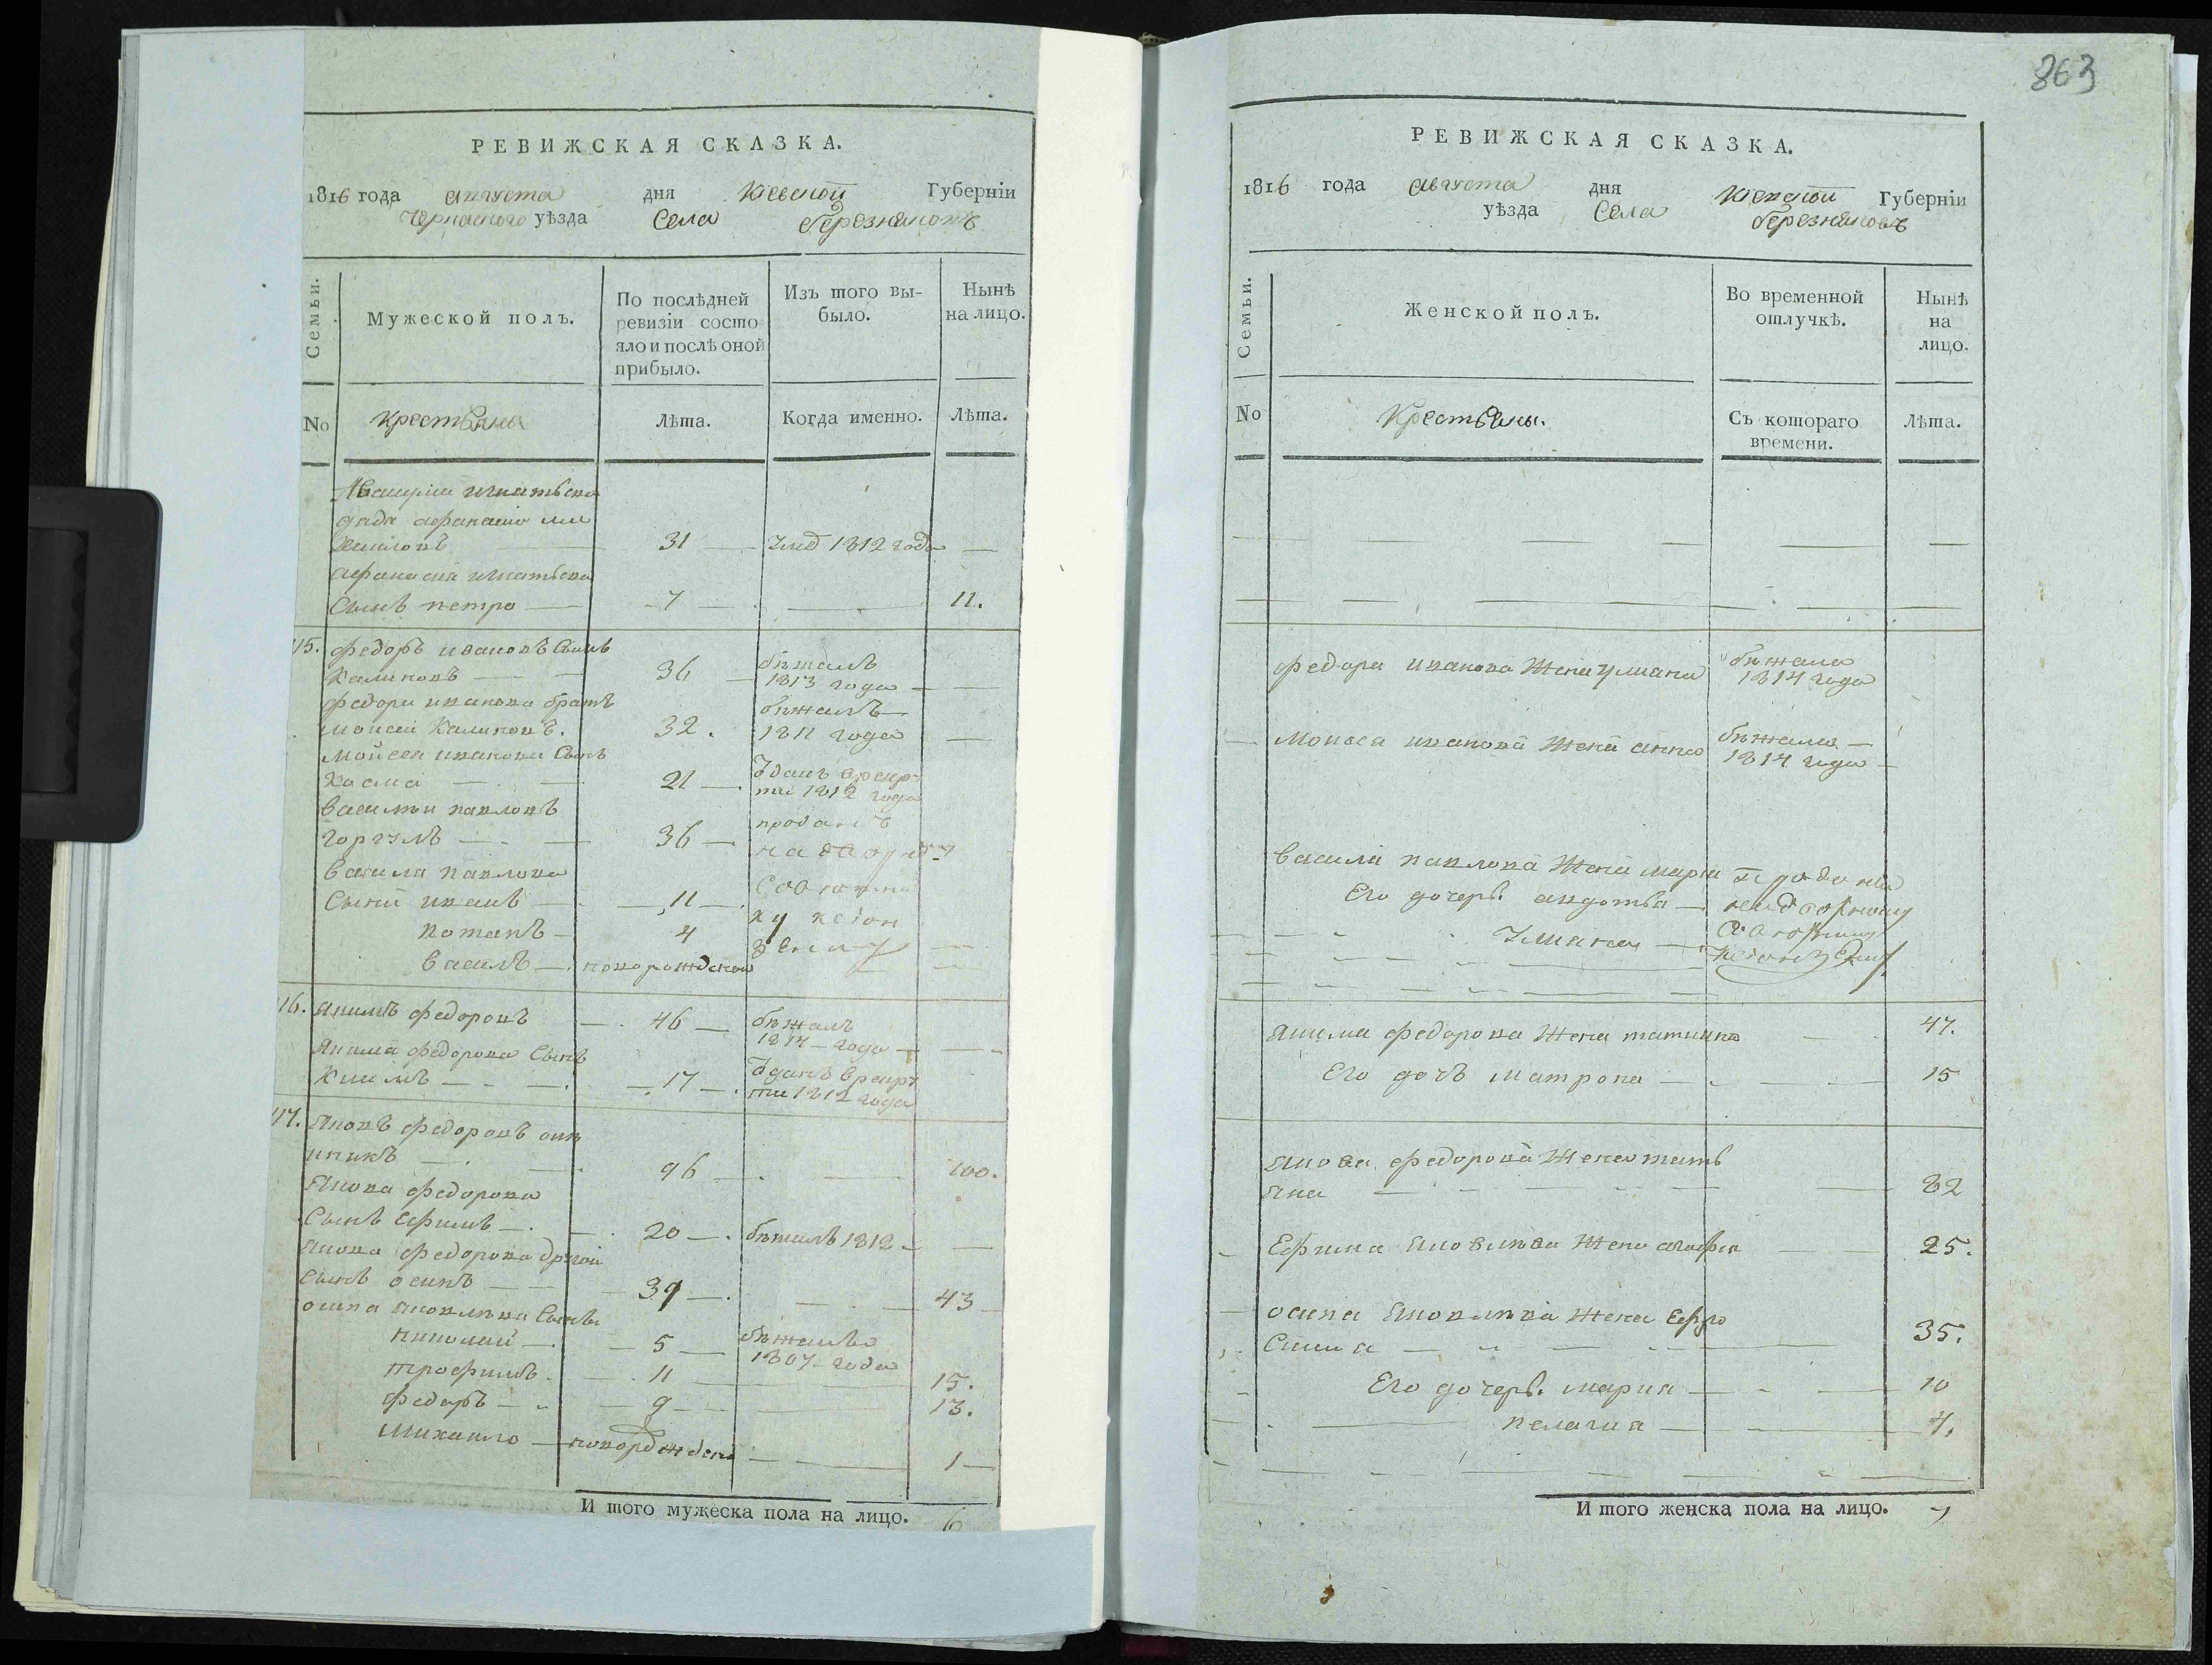 РЕВИЖСКАЯ СКАЗКА.
1816 года августа дня Кіевской Губерніи
Черкаского уѣзда Села Березняковъ
Семьи.
Мужеской полъ.
По послѣдней ревизіи состояло и послѣ оной прибыло.
Изъ того выбыло.
Нынѣ на лицо.
No
Крестьяни
Лѣта.
Когда именно.
Лѣта.
игнатьева
дядя
31 — 1812 года —
игнатьева
Сынъ петро — 7 — 11.
15. федоръ ивановъ Сынъ
Калиновъ — 36 — бѣжалъ 1813 года —
федора иванова братъ
моисей Калиновъ. 32. бѣжалъ 1811 года —
мойсея иванова Сынъ
Косма — 21 — Зданъ в рекруты 1812 года
василии павловъ
36 — проданъ
надворн
василя павлова
Сыны иванъ — 11 — Соо
потапъ — 4
василъ — новорожденой
16. Якимъ федоровъ — 46 — бѣжалъ 1814 года —
Якима федорова Сынъ
— 17 — Зданъ в рекруты 1812 года
17. Яковъ федоровъ
— 96 — 100.
Якова федорова
Сынъ Ефимъ — 20 — бѣжалъ 1812 —
Якова федорова другой
Сынъ осипъ — 39 — 43
осипа Яковлева Сынъ
николай — 5 — бѣжалъ 1807 года
трофимъ — 11 — 15.
федоръ — 9 — 13.
Михайло — новорожденъ — 1
И того мужеска пола на лицо. 6
363
РЕВИЖСКАЯ СКАЗКА.
1816 года августа дня Кіевской Губерніи
уѣзда Села Березняковъ
Семьи.
Женской полъ.
Во временной отлучкѣ.
Нынѣ на лицо.
No
Крестьяны.
Съ котораго времени.
Лѣта.
федора иванова Жена улиана бѣжала 1814 года
Мойсея иванова Жена анна бѣжала 1814 года
василя павлова Жена марія
Его дочеръ. авдотья —
Улиана —
Якима федорова Жена татияна — 47.
Его дочъ матрона — 15
Якова федорова Жена татьяна — 82
Ефима Яковлева Жена агафия — 25.
осипа Яковлева Жена Ефросиния — 35.
Его дочеръ. мариа — 10
пелагиа — 4.
И того женска пола на лицо. 7